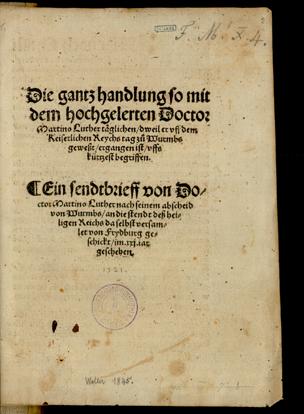 F. M. X. 4.
Die gantz handlung so mit
dem hochgelerten Doctor
Martino Luther täglichen/dweil er vff dem
Keiserlichen Reychs tag zů Wurmbs
geweßt/ergangen ist/vffs
kürtzest begriffen.
¶Ein sendtbrieff von Do-
ctor Martino Luther nach seinem abscheid
von Wurmbs/an die stendt deß hei-
ligen Reichs da selbst versam-
let von Frydburg ge-
schickt/im.xxj.iar
geschehen.
1521.
Weller 1875.